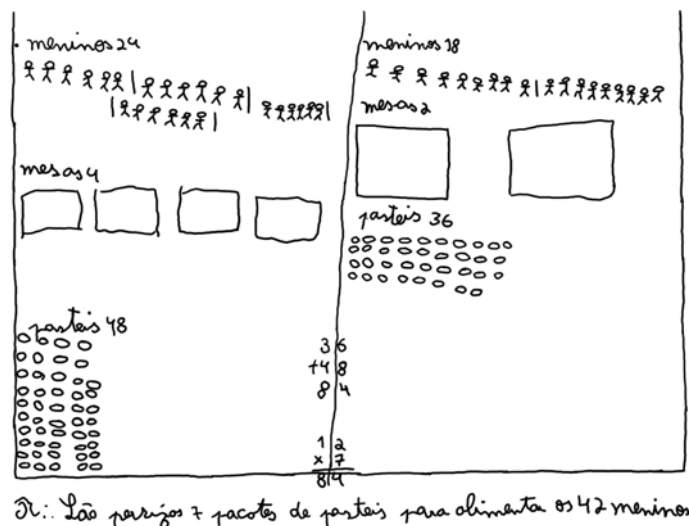 meninos 24
mesas 4
pasteis 48
meninos 18
mesas 2
pasteis 36
36
+48
84
12
x 7
84
R.: São perrizos 7 pacotes de pasteis para alimenta os 42 meninos